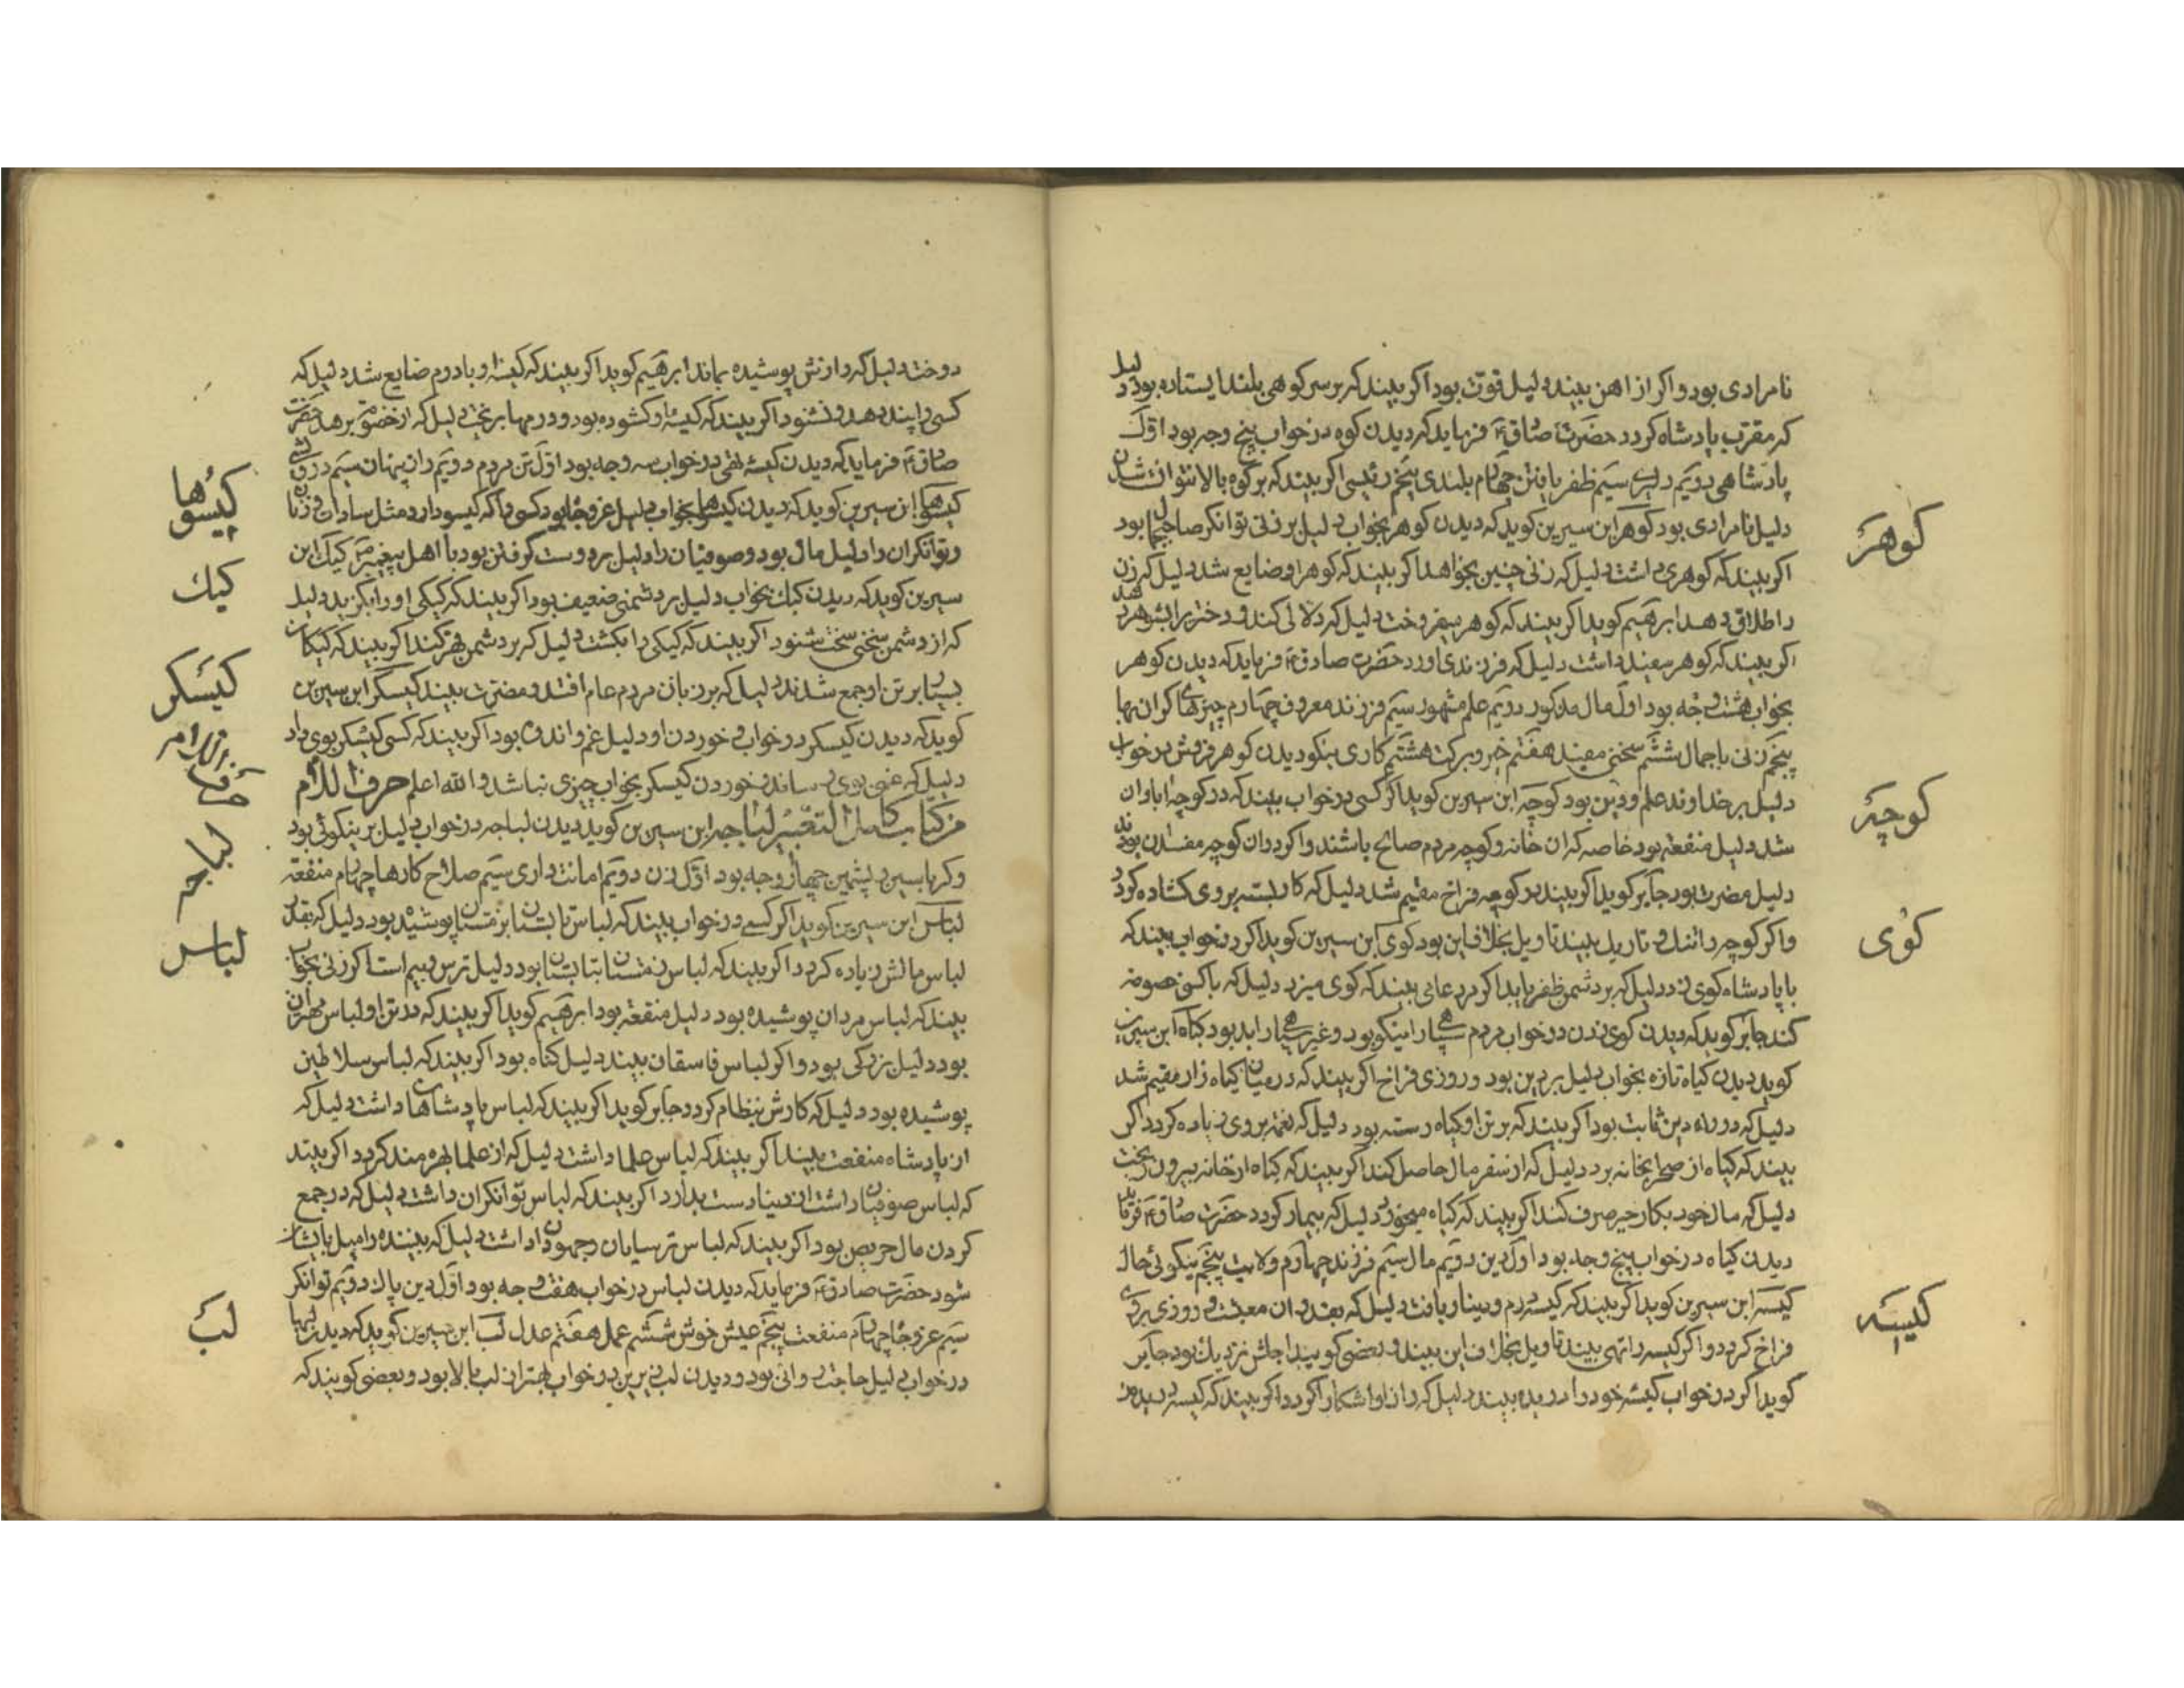 نامرادی بود و اکر از اهن بیند دلیل قوت بود اکر بیند که بر سر کوهی بلند ایستاده بود دلیل
که مقرب پادشاه کردد حضرت صادق فرماید که دیدن کوه در خواب پنج وجه بود اول
پادشاهی دویم دلیری سیم ظفر یافتن چهارم بلندی پنجم رئیسی اکر بیند که بر کوه بالا نتوانست شدن
دلیل نامرادی بود کوهر ابن سیرین کوید که دیدن کوهر بخواب دلیل بر زنی توانکر صاحب جمال بود
اکر بیند که کوهری داشت دلیل که زنی چنین بخواهد اکر بیند که کوهر او ضایع شد دلیل که زن
را طلاق دهد ابرهیم کوید اکر بیند که کوهر میفروخت دلیل که دلالی کند و دختر را بشوهر دهد
اکر بیند که کوهر داشت دلیل که فرزندی اورد حضرت صادق فرماید که دیدن کوهر
بخواب هشت وجه بود اول مال دویم علم مشهور سیم فرزند معروف چهارم چیزهای کران بها
پنجم زنی با جمال ششم سخنی مفید هفتم خیر و برکت هشتم کاری نیکو دیدن کوهر فروش در خواب
دلیل بر خداوند علم و دین بود کوچه ابن سیرین کوید اکر کسی در خواب بیند که در کوچه ابادان
شد دلیل منفعة بود خاصه که ان خانه و کوچه مردم صالح باشند و اکر در ان کوچه مفسدان بودند
دلیل مضرت بود جابر کوید اکر بیند در کوچه فراخ مقیم شد دلیل که کار بسته بر وی کشاده کردد
و اکر کوچه را تنک و تاریک بیند تاویل بخلاف این بود کوی ابن سیرین کوید اکر در خواب بیند که
با پادشاه کوی زد دلیل که بر دشمن ظفر یابد اکر مرد عامی بیند که کوی میزد دلیل که با کسی خصومة
کند جابر کوید که دیدن کوی زدن در خواب مردم را نیکو بود و غیر را بد بود کیاه ابن سیرین
کوید دیدن کیاه تازه بخواب دلیل بر دین بود و روزی فراخ اکر بیند که در میان کیاه زار مقیم شد
دلیل که در راه دین ثابت بود اکر بیند که بر تن او کیاه رسته بود دلیل که نعمة بر وی زیاده کردد اکر
بیند که کیاه از صحرا بخانه برد دلیل که از سفر مال حاصل کند اکر بیند که کیاه از خانه بیرون ریخت
دلیل که مال خود بکار خیر صرف کند اکر بیند که کیاه میخورد دلیل که بیمار کردد حضرت صادق فرماید
دیدن کیاه در خواب پنج وجه بود اول دین دویم مال سیم فرزند چهارم ولایت پنجم نیکوئی حال
کیسه ابن سیرین کوید اکر بیند که کیسه درم و دینار یافت دلیل که بقدر ان معیشت و روزی بر وی
فراخ کردد و اکر کیسه را تهی بیند تاویل بخلاف این بیند و بعضی کویند اجلش نزدیک بود جابر
کوید اکر در خواب کیسه خود را دریده بیند دلیل که راز او اشکارا کردد اکر بیند که کیسه دریده
کوهر
کوچه
کوی
کیسه
دوخت دلیل که رازش پوشیده بماند ابرهیم کوید اکر بیند که کیسه او با درم ضایع شد دلیل که
کسی را پند دهد و نشنود اکر بیند که کیسه او کشوده بود و درمها بریخت دلیل که از خصومة برهد حضرت
صادق فرماید که دیدن کیسه تهی در خواب سه وجه بود اول تن مردم دویم راز پنهان سیم درویشی
کیسوها ابن سیرین کوید که دیدن کیسوها بخواب دلیل عز و جاه بود کسی را که کیسو دارد مثل سادات و زنان
و توانکران را دلیل مال بود و صوفیان را دلیل بر دوست کرفتن بود با اهل پیغمبر کیک ابن
سیرین کوید که دیدن کیک بخواب دلیل بر دشمنی ضعیف بود اکر بیند که کیکی او را بکزید دلیل
که از دشمن سخنی سخت شنود اکر بیند که کیکی را بکشت دلیل که بر دشمن قهر کند اکر بیند که کیکان
بسیار بر تن او جمع شدند دلیل که بر زبان مردم عام افتد و مضرت بیند کیسکر ابن سیرین
کوید که دیدن کیسکر در خواب و خوردن او دلیل غم و اندوه بود اکر بیند که کسی کیسکر بوی داد
دلیل که غمی بوی رساند و خوردن کیسکر بخواب چیزی نباشد و الله اعلم حرف اللام
من کتاب کامل التعبیر لباجه ابن سیرین کوید دیدن لباجه در خواب دلیل بر نیکوئی بود
و کرباسین و پشمین چهار وجه بود اول زن دویم امانت داری سیم صلاح کارها چهارم منفعة
لباس ابن سیرین کوید اکر کسی در خواب بیند که لباس تابستان بزمستان پوشیده بود دلیل که بقدر
لباس مالش زیاده کردد اکر بیند که لباس زمستان بتابستان بود دلیل ترس و بیم است اکر زنی بخواب
بیند که لباس مردان پوشیده بود دلیل منفعة بود ابرهیم کوید اکر بیند که در تن او لباس مهتران
بود دلیل بزرکی بود و اکر لباس فاسقان بیند دلیل کناه بود اکر بیند که لباس سلاطین
پوشیده بود دلیل که کارش بنظام کردد جابر کوید اکر بیند که لباس پادشاهان داشت دلیل که
از پادشاه منفعت بیند اکر بیند که لباس علما داشت دلیل که از علما بهره مند کردد اکر بیند
که لباس صوفیان داشت از دنیا دست بدارد اکر بیند که لباس توانکران داشت دلیل که در جمع
کردن مال حریص بود اکر بیند که لباس ترسایان و جهودان داشت دلیل که بیننده را میل بایشان
شود حضرت صادق فرماید که دیدن لباس در خواب هفت وجه بود اول دین پاک دویم توانکری
سیم عز و جاه چهارم منفعت پنجم عیش خوش ششم عمل هفتم عدل لب ابن سیرین کوید که دیدن لبها
در خواب دلیل حاجت روائی بود و دیدن لب زیرین در خواب بهتر از لب بالا بود و بعضی کویند که
کیسوها
کیک
کیسکر
لباجه
لباس
لب